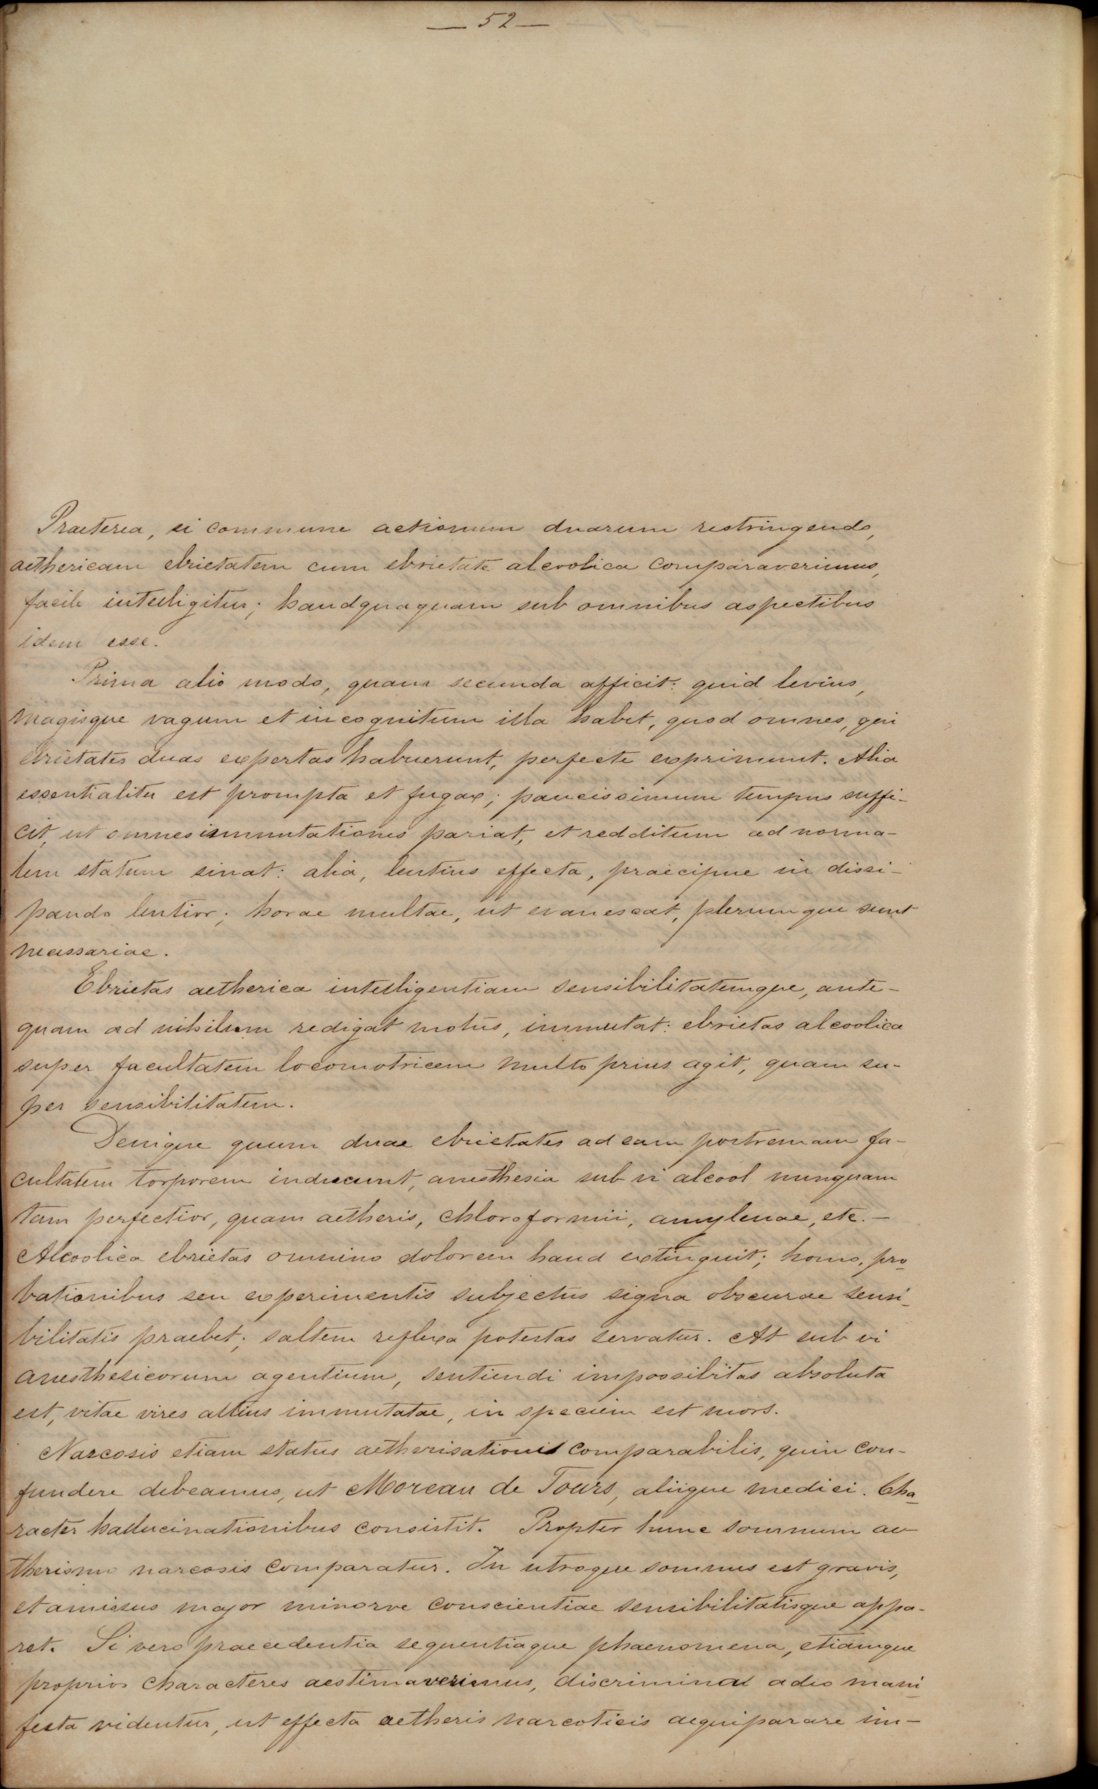 — 52 —
Praeterea, si commune actionum duarum restringendo,
aethericam ebrietatem cum ebrietate alcoolica comparaverimus,
facile intelligitur; haudquaquam sub omnibus aspectibus
idem esse.
Prima alio modo, quam secunda afficit: quid levius,
magisque vagum et incognitum illa habet, quod omnes, qui
ebrietates duas expertas habuerunt, perfecte exprimunt. Alia
essentialiter est prompta et fugax; paucissimum tempus suffi-
cit, ut omnes immutationes pariat, et redditum ad norma-
lem statum sinat: alia, lentius effecta, praecipue in dissi-
pando lentior; horae multae, ut evanescat, plerumque sunt
necessariae.
Ebrietas aetherica intelligentiam sensibilitatemque, ante-
quam ad nihilum redigat motus, immutat: ebrietas alcoolica
super facultatem locomotricem multo prius agit, quam su-
per sensibilitatem.
Denique quum duae ebrietates ad eam postremam fa-
cultatem torporem inducunt, anesthesia sub vi alcool nunquam
tam perfectior, quam aetheris, chloroformii, amylenae, etc. —
Alcoolica ebrietas omnino dolorem haud extinguit; homo, pro-
bationibus seu experimentis subjectus signa obscurae sensi-
bilitatis praebet; saltem reflexa potestas servatur. At sub vi
anesthesicorum agentium, sentiendi impossibilitas absoluta
est, vitae vires altius immutatae, in speciem est mors.
Narcosis etiam status aetherisationis comparabilis, quin con-
fundere debeamus, ut Moreau de Tours, aliique medici. Cha-
racter hallucinationibus consistit. Propter hunc somnum ae-
therismo narcosis comparatur. In utroque somnus est gravis,
et amissus major minorve conscientiae sensibilitatisque appa-
ret. Si vero praecedentia sequentiaque phaenomena, etiamque
proprios characteres aestimaverimus, discrimina adeo mani-
festa videntur, ut effecta aetheris narcoticis aequiparare im-